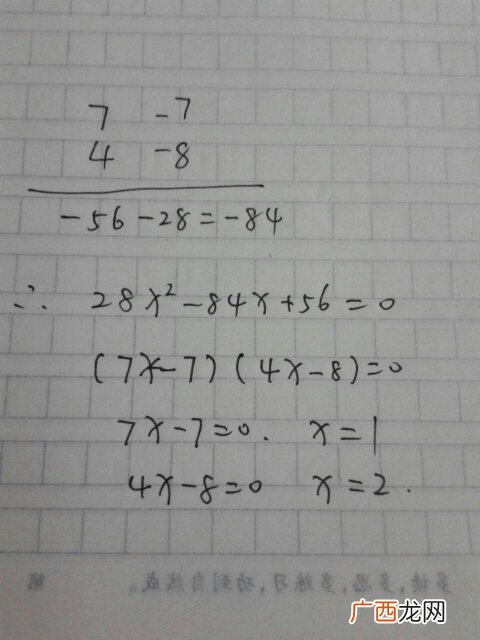 7 -7
4 -8
-56-28=-84
∴ 28x²-84x+56=0
(7x-7)(4x-8)=0
7x-7=0. x=1
4x-8=0 x=2.
多读,多思,多练习,功到自然成。 第
广西龙网